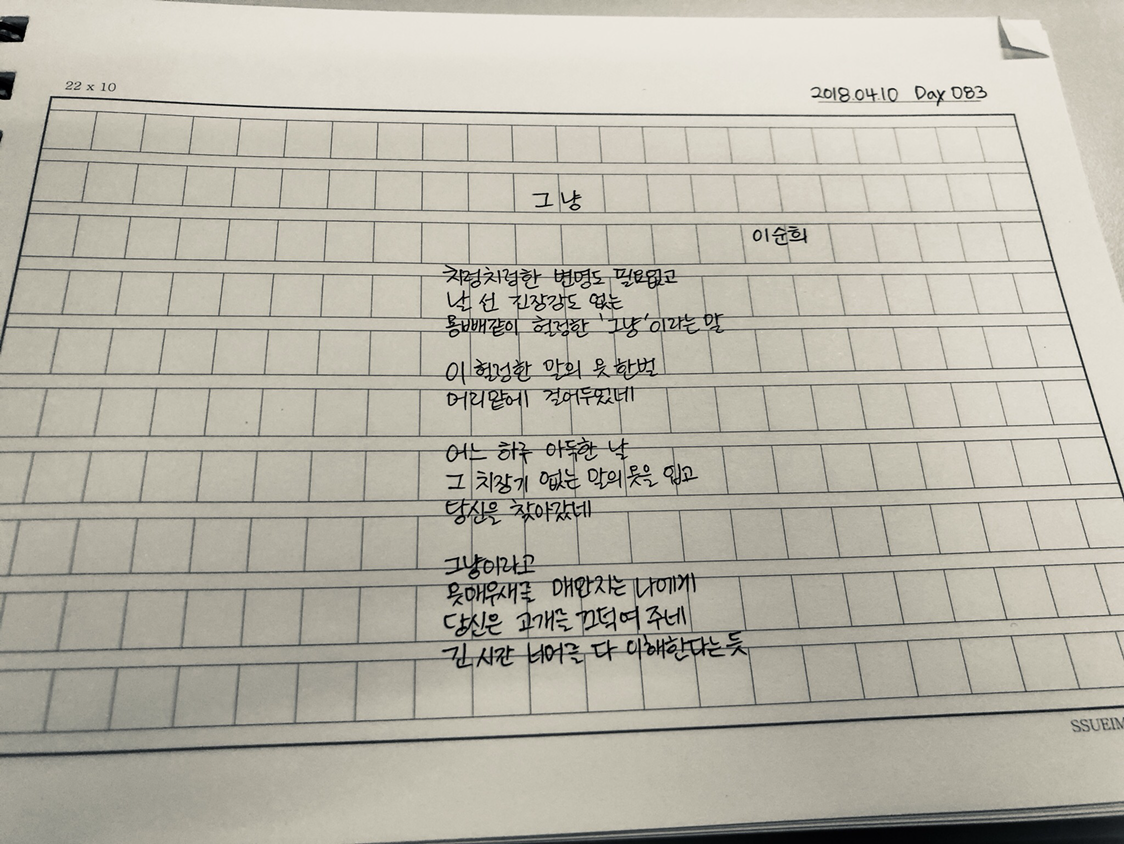 22 x 10
2018.04.10 Day 083
그냥
이순희
치렁치렁한 변명도 필요없고
날 선 긴장감도 없는
몸빼같이 헐렁한 '그냥'이라는 말
이 헐렁한 말의 옷 한벌
머리맡에 걸어두었네
어느 하루 아득한 날
그 치장기 없는 말의 옷을 입고
당신을 찾아갔네
그냥이라고
옷매무새를 매만지는 나에게
당신은 고개를 끄덕여 주네
긴 시간 너머를 다 이해한다는 듯
SSUEIM